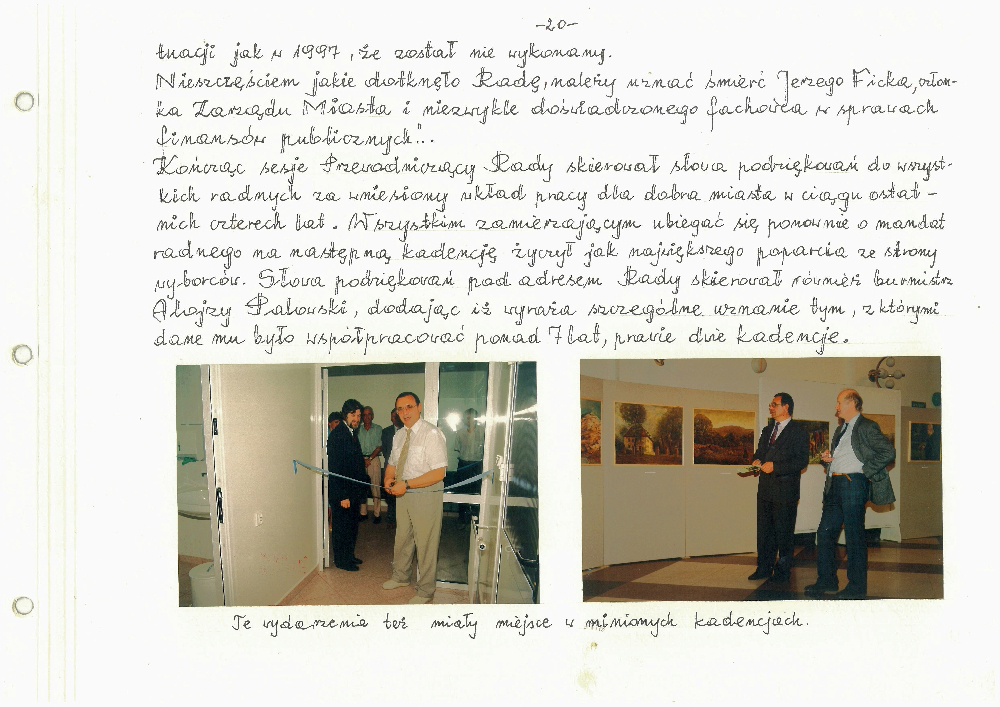 -20-
tuacji jak w 1997, że został nie wykonany.
Nieszczęściem jakie dotknęło Radę, należy uznać śmierć Jerzego Ficka, człon-
ka Zarządu Miasta i niezwykle doświadczonego fachowca w sprawach
finansów publicznych"...
Kończąc sesje Przewodniczący Rady skierował słowa podziękowań do wszyst-
kich radnych za wniesiony wkład pracy dla dobra miasta w ciągu ostat-
nich czterech lat. Wszystkim zamierzającym ubiegać się ponownie o mandat
radnego na następną kadencję życzył jak największego poparcia ze strony
wyborców. Słowa podziękowań pod adresem Rady skierował również burmistrz
Alojzy Palowski, dodając iż wyraża szczególne uznanie tym, z którymi
dane mu było współpracować ponad 7 lat, prawie dwie kadencje.
Te wydarzenia też miały miejsce w minionych kadencjach.